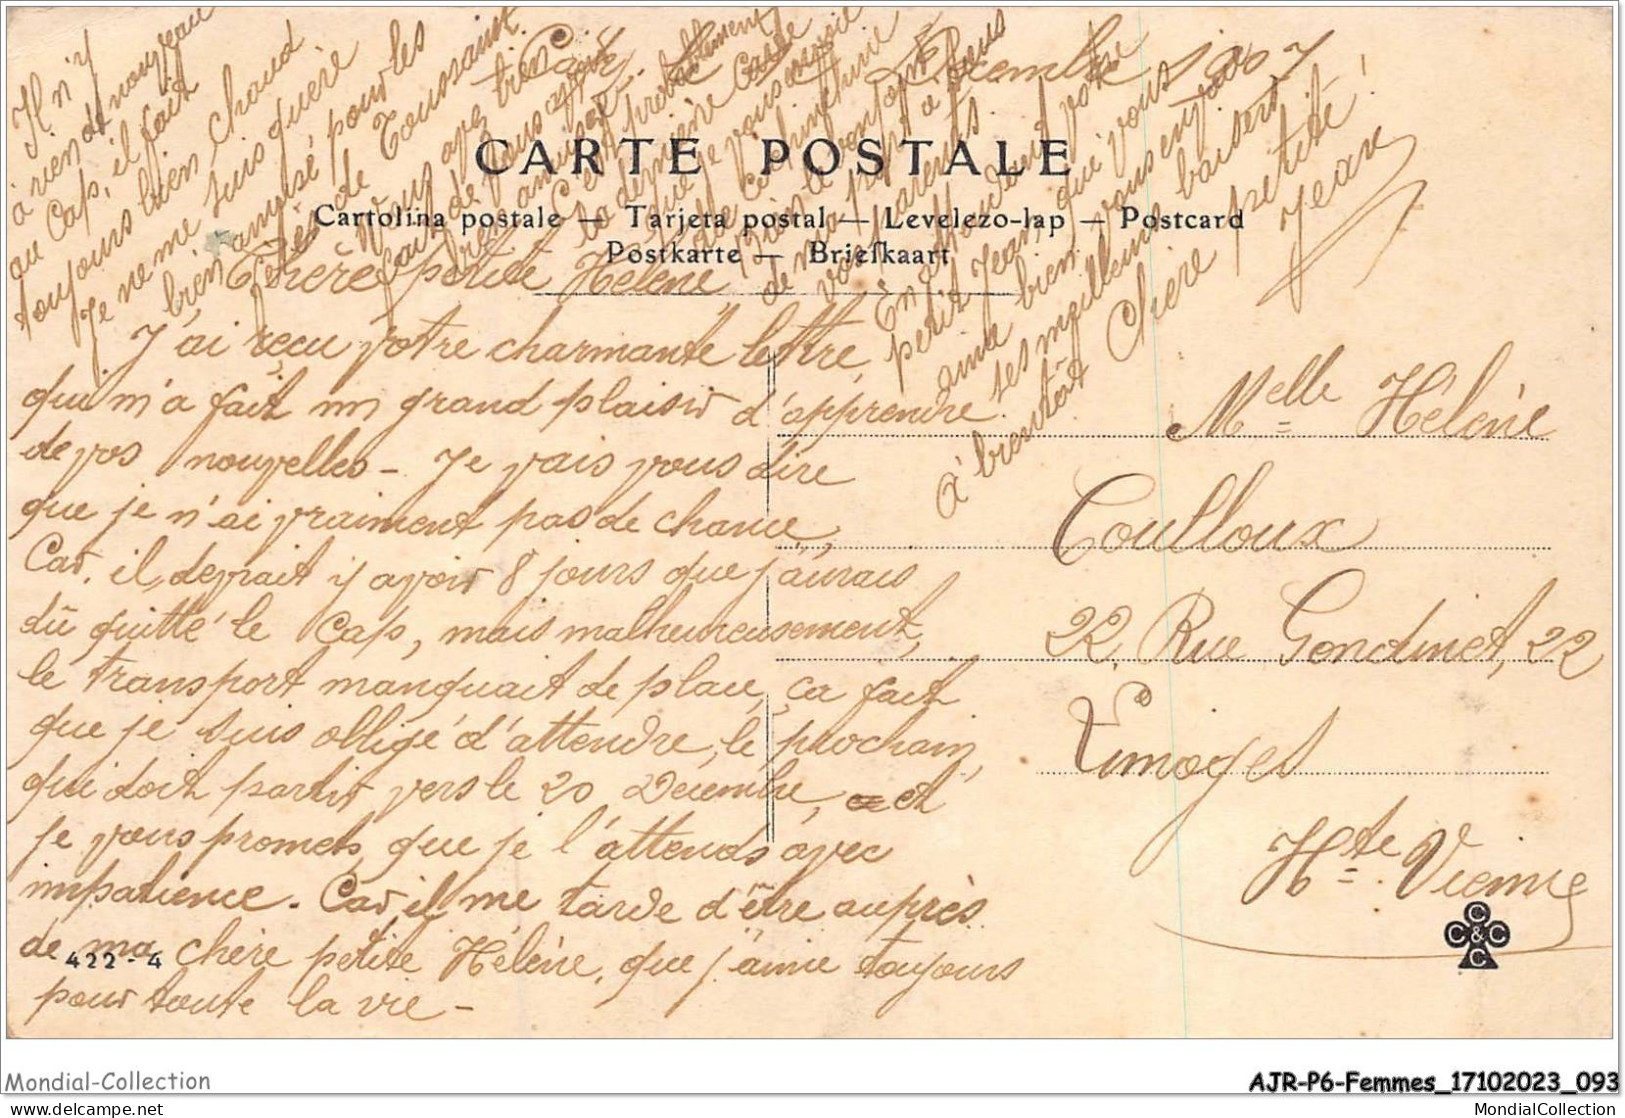 Cap, le Décembre 1907
CARTE POSTALE
Cartolina postale — Tarjeta postal — Levelezo-lap — Postcard
Postkarte — Briefkaart
Chère petite Hélène,
J'ai reçu votre charmante lettre,
qui m'a fait un grand plaisir d'apprendre
de vos nouvelles - Je vais vous dire
que je n'ai vraiment pas de chance,
Car, il devait y avoir 8 jours que j'aurais
dû quitté le Cap, mais malheureusement,
le transport manquait de place, ça fait
que je suis obligé d'attendre, le prochain,
qui doit partir vers le 20 Décembre, et
je vous promets, que je l'attends avec
impatience. Car il me tarde d'être auprès
de ma chère petite Hélène, que j'aime toujours
pour toute la vie -
Il n'y
a rien de nouveau
au Cap, il fait
toujours bien chaud
Je ne me suis guère
bien amusé pour les
fêtes de Toussaint.
Vous avez bien
fait de vous
amuser.
C'est probablement
la dernière Carte
que je vous envoie
de
Bien le bonjour
de ma part à tous
vos parents.
En attendant votre
petit Jean, qui vous
aime bien vous envoie
ses meilleurs baisers
à bientôt Chère petite !
Jean
Melle Hélène
Coulloux
22, Rue Gondinet, 22
Limoges
Hte Vienne
422-4
C C & C C
Mondial-Collection
AJR-P6-Femmes_17102023_093
delcampe.net
MondialCollection